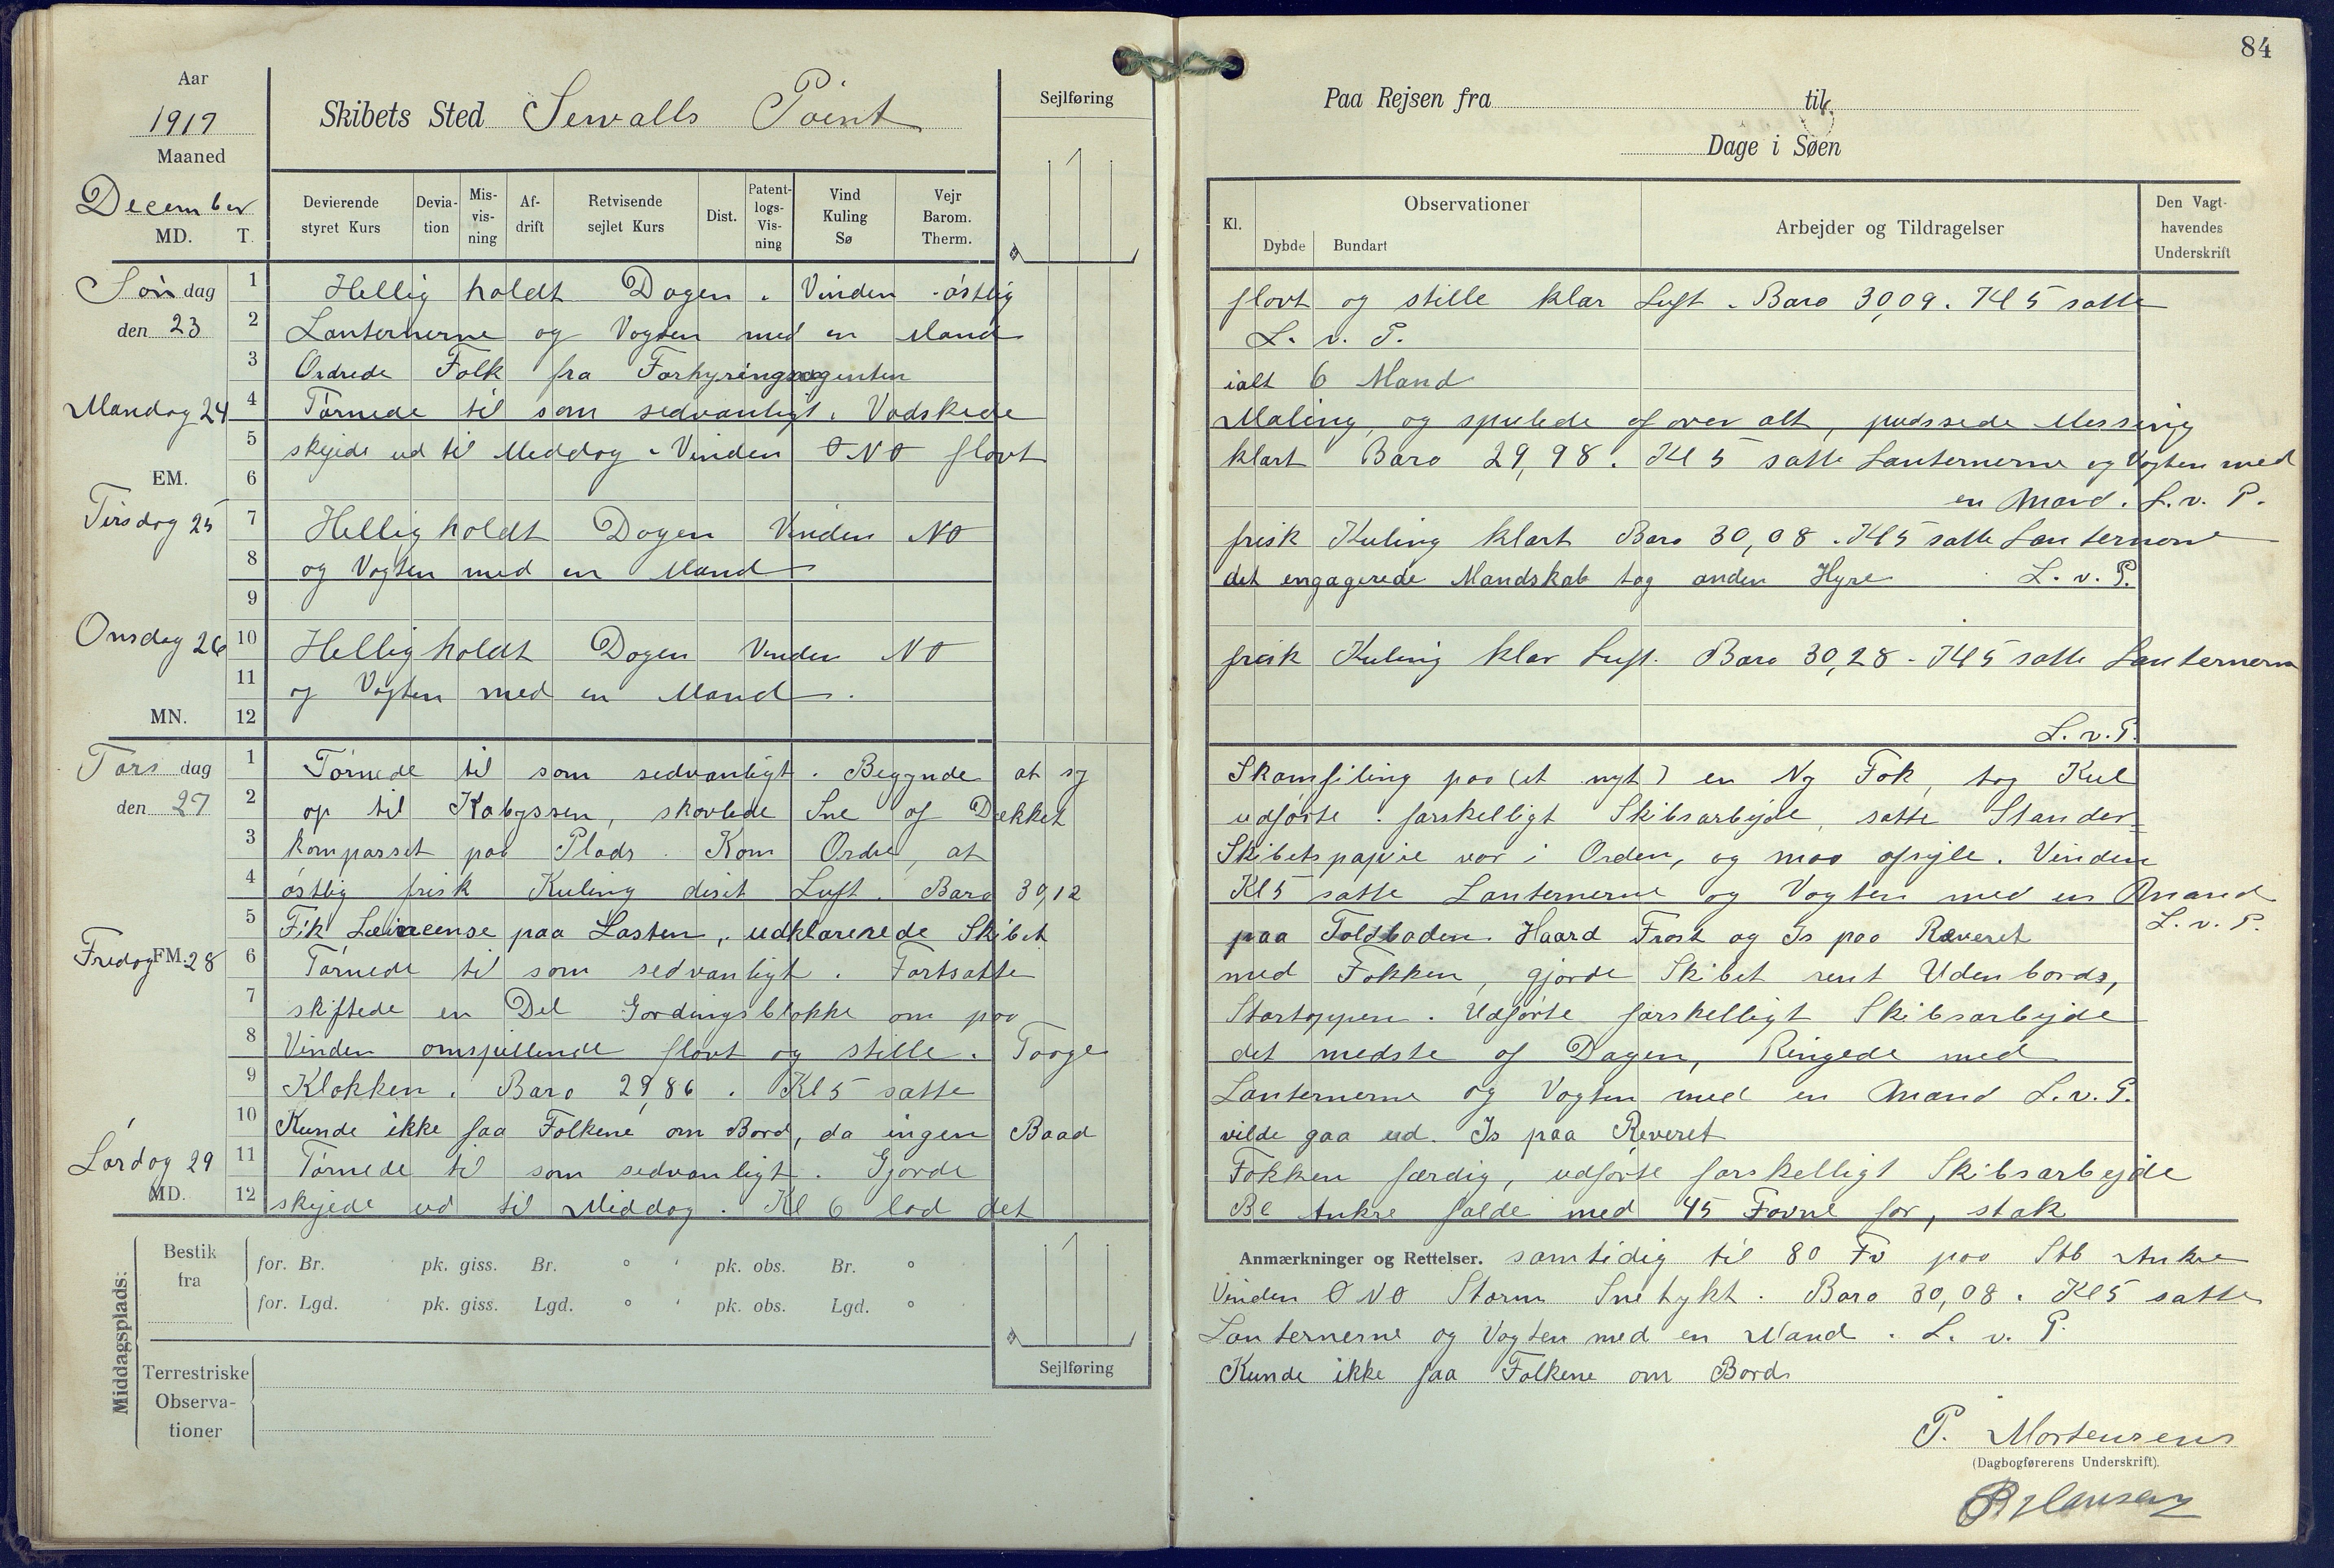 84
Aar
1917
Maaned
December
MD. T.
Skibets Sted Sewalls Point
Sejlføring
Devierende styret Kurs
Devia-tion
Mis-vis-ning
Af-drift
Retvisende sejlet Kurs
Dist.
Patent-logs-Vis-ning
Vind Kuling Sø
Vejr Barom. Therm.
Paa Rejsen fra til
Dage i Søen
Kl.
Observationer
Dybde Bundart
Arbejder og Tildragelser
Den Vagt-havendes Underskrift
Søndag 1 Hellig holdt Dagen. Vinden østlig flovt og stille klar Luft. Baro 30,09. Kl 5 satte
den 23 2 Lanternerne og Vagten med en Mand L. v. P.
3 Ordrede Folk fra Forhyringsagenten ialt 6 Mand
Mandag 24 4 Tørnede til som sedvanligt. Vadskede Maling, og spulede af over alt, pudssede Messing
5 skejede ud til Meddag. Vinden ONO flovt klart Baro 29,98. Kl 5 satte Lanternerne og Vagten med
EM. 6 en Mand. L. v. P.
Tirsdag 25 7 Hellig holdt Dagen Vinden NO frisk Kuling klart Baro 30,08. Kl 5 satte Lanternerne
8 og Vagten med en Mand det engagerede Mandskab tog anden Hyre L. v. P.
9
Onsdag 26 10 Hellig holdt Dagen Vinden NO frisk Kuling klar Luft. Baro 30,28. Kl 5 satte Lanternerne
11 og Vagten med en Mand.
MN. 12 L. v. P.
Torsdag 1 Tørnede til som sedvanligt. Begynde at sy Skamfiling paa (et nyt) en Ny Fok, tog Kul
den 27 2 op til Kabyssen, skovlede Sne af Dækket udførte forskelligt Skibsarbejde, satte Stander=
3 kompasset paa Plads. Kom Ordre, at Skibetspapire var i Orden, og maa afsejle. Vinden
4 østlig frisk Kuling diset Luft. Baro 30,12 Kl 5 satte Lanternerne og Vagten med en Mand
5 Fik Leincense paa Lasten, udklarerede Skibet paa Toldboden. Haard Frost og Is paa Reveret L. v. P.
Fredag FM. 28 6 Tørnede til som sedvanligt. Fortsatte med Fokken, gjorde Skibet rent Udenbords,
7 skiftede en Del Gordingsblokke om paa Stortoppen. Udførte forskelligt Skibsarbejde
8 Vinden omspillende flovt og stille. Taage det medste af Dagen, Ringede med
9 Klokken. Baro 29,86. Kl 5 satte Lanternerne og Vagten med en Mand L. v. P.
10 Kunde ikke faa Folkene om Bord, da ingen Baad vilde gaa ud. Is paa Reveret
Lørdag 29 11 Tørnede til som sedvanligt. Gjorde Fokken færdig, udførte forskelligt Skibsarbejde
MD. 12 skejede ud til Middag. Kl 6 lod det Bb Ankre falde med 45 Favne for, stak
Anmærkninger og Rettelser. samtidig til 80 Fv paa Stb Anker
Vinden ONO Storm Snetykt. Baro 30,08. Kl 5 satte
Lanternerne og Vagten med en Mand. L. v. P.
Kunde ikke faa Folkene om Bord
Middagsplads:
Bestik fra
for. Br. ' pk. giss. Br. ° ' pk. obs. Br. °
for. Lgd. ' pk. giss. Lgd. ° ' pk. obs. Lgd. °
Terrestriske Observa-tioner
Sejlføring
P. Mortensens
(Dagbogførerens Underskrift).